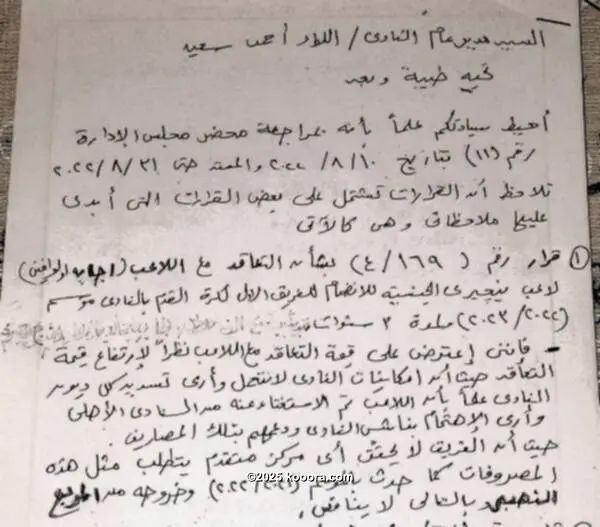 السيد مدير عام النادى / اللواء أحمد سعيد
تحيه طيبة وبعد
أحيط سيادتكم علماً بأنه بمراجعة محضر مجلس الإدارة
رقم (١١) بتاريخ ١٠/ ٨/ ٢٠٢٢ والممتد حتى ٣١/ ٨/ ٢٠٢٢
تلاحظ أن القرارات تشتمل على بعض القرارات التى أبدى
عليها ملاحظاتى وهى كالآتى
① قرار رقم (٤/١٦٩) بشأن التعاقد مع اللاعب (
لاعب نيجيرى الجنسية للانضمام للفريق الأول لكرة القدم بالنادى موسم
(٢٠٢٢/٢٠٢٣) لمدة ٣ سنوات
- فإننى أعترض على قيمة التعاقد مع اللاعب نظراً لإرتفاع قيمة
التعاقد حيث أن امكانيات النادى لا تتحمل وأرى تسديد كل ديون
النادى علماً بأن اللاعب تم الاستغناء عنه من النادى الأهلى
وأرى الإهتمام بناشئى النادى ودعمهم بتلك المصاريف.
حيث أن الفريق لا يحقق أى مركز متقدم يتطلب مثل هذه
المصروفات كما حدث الموسم (٢٠٢١/٢٠٢٢) وخروجه من المربع
الذهبى وبالتالى لا ينافس.
©2025 kooora.com